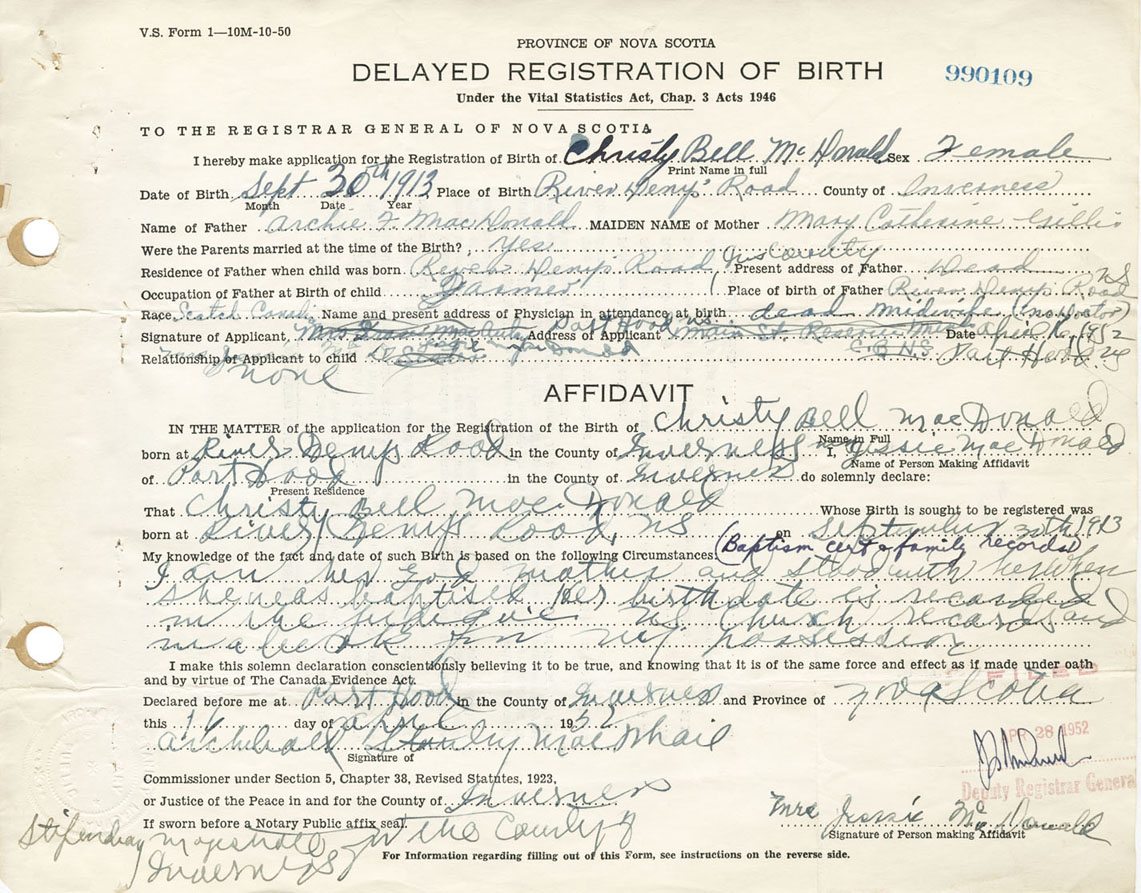 V.S. Form 1—10M-10-50
PROVINCE OF NOVA SCOTIA
DELAYED REGISTRATION OF BIRTH
990109
Under the Vital Statistics Act, Chap. 3 Acts 1946
TO THE REGISTRAR GENERAL OF NOVA SCOTIA
I hereby make application for the Registration of Birth of Christy Bell McDonald Sex Female
Print Name in full
Date of Birth Sept 30th 1913 Place of Birth River Denys Road County of Inverness
Month Date Year
Name of Father Archie F. MacDonald MAIDEN NAME of Mother Mary Catherine Gillis
Were the Parents married at the time of the Birth? Yes
Residence of Father when child was born River Denys Road Inv County Present address of Father Dead
Occupation of Father at Birth of child Farmer Place of birth of Father River Denys Road NS
Race Scotch Canadi Name and present address of Physician in attendance at birth dead midwife (no doctor)
Signature of Applicant, Address of Applicant Port Hood NS Main St. Reserve Date April 16, 1952
Relationship of Applicant to child C.B.N.S. Port Hood NS
none
AFFIDAVIT
IN THE MATTER of the application for the Registration of the Birth of Christy Bell MacDonald
Name in Full
born at River Denys Road in the County of Inverness I, Jessie MacDonald
Name of Person Making Affidavit
of Port Hood in the County of Inverness do solemnly declare:
Present Residence
That Christy Bell MacDonald Whose Birth is sought to be registered was
born at River Denys Road, NS on September 30th 1913
My knowledge of the fact and date of such Birth is based on the following Circumstances: (Baptism cert & family records)
I am her God mother and stood with her when
she was baptised Her birthdate is recorded
in the church records and
in a book in my possession
I make this solemn declaration conscientiously believing it to be true, and knowing that it is of the same force and effect as if made under oath
and by virtue of The Canada Evidence Act.
FILED
Declared before me at Port Hood in the County of Inverness and Province of Nova Scotia
this 16 day of April 1952
APR 28 1952
Archibald Stanley MacPhail
Signature of
Deputy Registrar General
Commissioner under Section 5, Chapter 38, Revised Statutes, 1923,
or Justice of the Peace in and for the County of Inverness
Mrs Jessie McDonald
Signature of Person making Affidavit
If sworn before a Notary Public affix seal.
Stipendiary magistrate in the County of
Inverness
For Information regarding filling out of this Form, see instructions on the reverse side.